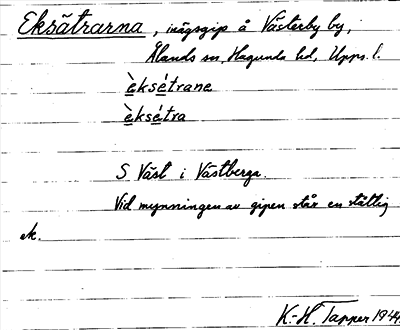 Eksätrarna, inägsgip å Västerby by,
Ålands sn, Hagunda hd, Upps. l.
èksétrane
èksétra
S Väst i Västberga.
Vid mynningen av gipen står en ståtlig
ek.
K.-H. Tapper 1944.